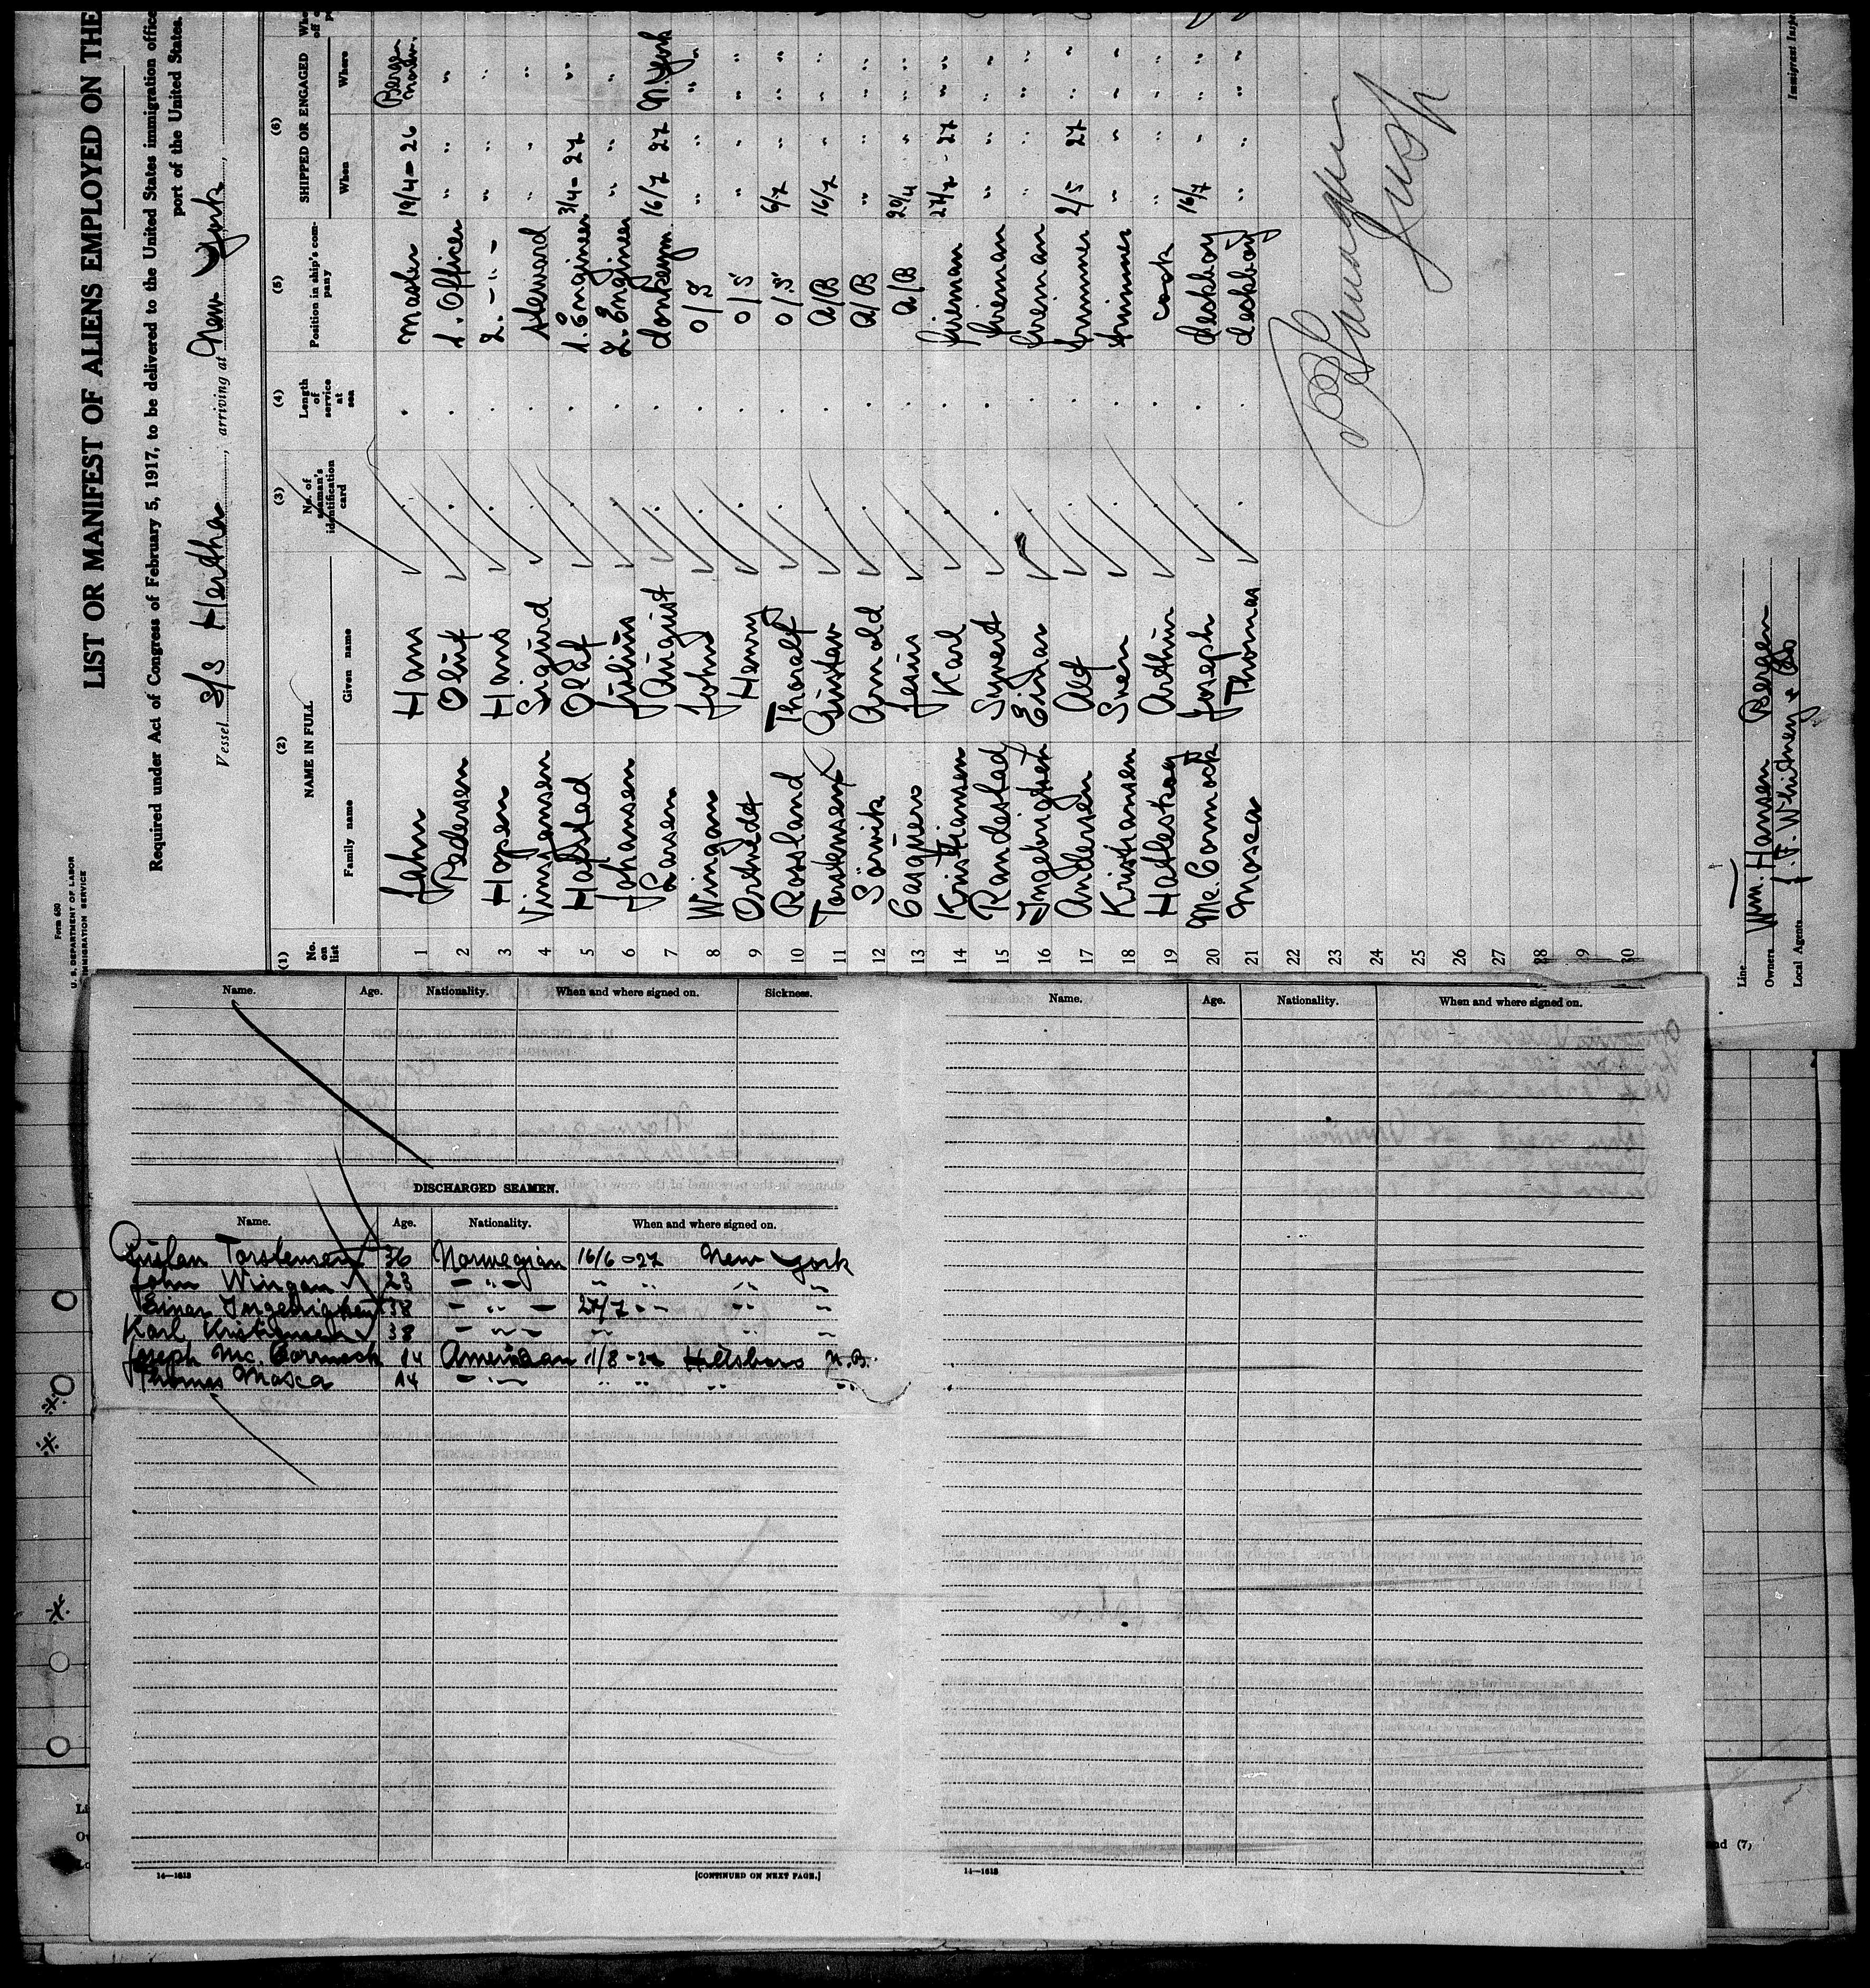 Form 680
U. S. DEPARTMENT OF LABOR
IMMIGRATION SERVICE
LIST OR MANIFEST OF ALIENS EMPLOYED ON THE
Required under Act of Congress of February 5, 1917, to be delivered to the United States immigration office
port of the United States.
Vessel S/S Hertha, arriving at New York,
(1) (2) (3) (4) (5) (6)
No. on list NAME IN FULL No. of seaman's identification card Length of service at sea Position in ship's company SHIPPED OR ENGAGED
Family name Given name When Where
1 Jahn Hans master 19/4-26 Bergen
2 Pedersen Oluf 1. Officer " " "
3 Hopen Hans 2. -"- " " "
4 Vinsjansen Sigurd Steward " " "
5 Hafstad Olaf 1. Engineer 3/4-27 "
6 Johansen Julius 2. Engineer " " "
7 Larsen August donkeym 16/7 27 N. York
8 Wingan John O/S " " " "
9 Ortvedt Henry O/S " " " "
10 Rossland Thoralf O/S 6/7 " " "
11 Torstensen Gustav A/B 16/7 " " "
12 Sörvik Arnold A/B " " " "
13 Casquero Jesus A/B 20/4 " " "
14 Kristiansen Karl fireman 27/7 - 27 " "
15 Randestad Sigvert fireman " " " "
16 Ingebrigtsen Einar fireman " " " "
17 Andersen Alf trimmer 2/5 27 " "
18 Kristiansen Sven trimmer " " " "
19 Hatleskog Arthur cook " " " "
20 Mc. Cormack Joseph deckboy 16/7 " " "
21 Mosca Thomas deckboy " " " "
22
23
24
25
26
27
28
29
30
Line
Owners Wm. Hansen Bergen
Local Agents J. F. Whitney & Co
Immigrant Insp
Name. Age. Nationality. When and where signed on. Sickness.
DISCHARGED SEAMEN.
Name. Age. Nationality. When and where signed on.
Gustav Torstensen 36 Norwegian 16/6-27 New York
John Wingan 23 - " - " " " "
Einar Ingebrigtsen 38 - " - 27/7 - - " "
Karl Kristiansen 38 - " - " " " "
Joseph Mc. Cormack 14 American 1/8-27 Hillsboro N.B.
Thomas Mosca 14 - " - " " " "
14—1613
[CONTINUED ON NEXT PAGE.]
Name. Age. Nationality. When and where signed on.
14—1613
and (7)